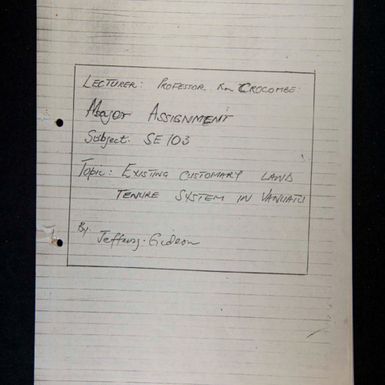 LECTURER: PROFESSOR Ron CROCOMBE.
Major ASSIGNMENT
Subject. SE103
Topic: EXISTING CUSTOMARY LAND
TENURE SYSTEM IN VANUATU
By.
Jeffrey. Gideon